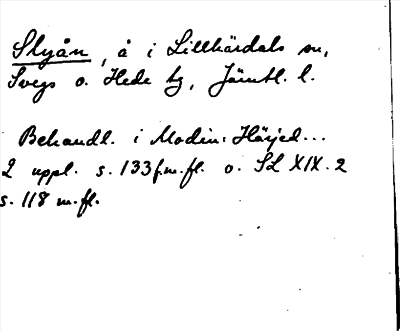 Slyån, å i Lillhärdals sn,
Svegs o. Hede tg, Jämtl. l.
Behandl. i Modin: Härjed...
2 uppl. s. 133 f. m. fl. o. SL XIX. 2
s. 118 m. fl.